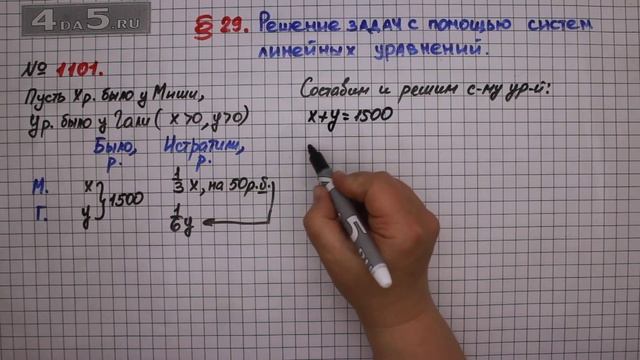 4DA5.RU
§ 29. Решение задач с помощью систем
линейных уравнений.
№ 1101.
Пусть Хр. было у Миши,
Ур. было у Гали ( x>0, y>0)
Было, р.
Истратили, р.
М. x
1/3 x, на 50р.б.
1500
Г. y
1/6 y
Составим и решим с-му ур-й:
x+y=1500